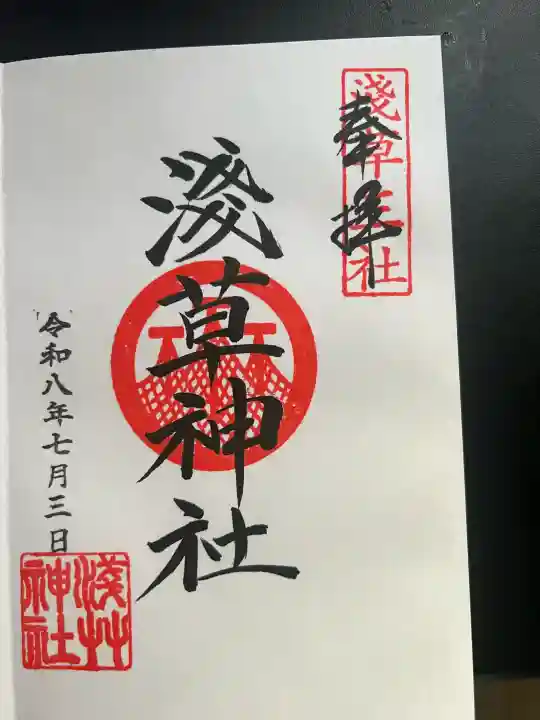 奉拝
淺草三社
淺草神社
令和八年七月三日
淺草神社